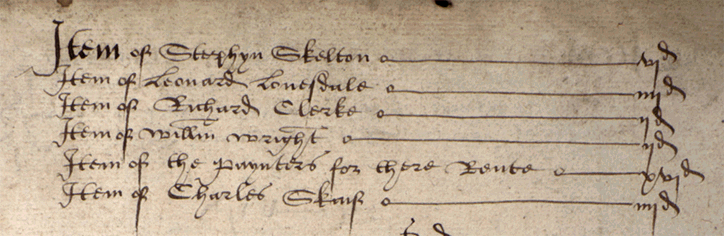 Item of Stephyn Skelton vjd
Item of Leonard Lonesdale iiijd
Item of Richard Clerke ijd
Item of Willm wright ijd
Item of the paynters for there Rente xvjd
Item of Charles Skaif iiijd